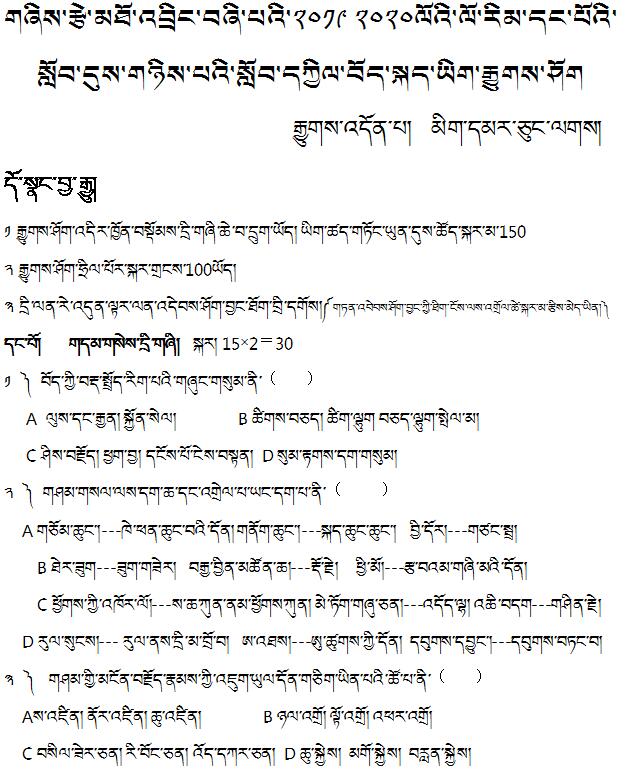 གཞིས་རྩེ་མཐོ་འབྲིང་བཞི་པའི་༢༠༡༩ ༢༠༢༠ལོའི་ལོ་རིམ་དང་པོའི་
སློབ་དུས་གཉིས་པའི་སློབ་དཀྱིལ་བོད་སྐད་ཡིག་རྒྱུགས་ཤོག
རྒྱུགས་འདོན་པ། མིག་དམར་ཅུང་ལགས།
དོ་སྣང་བྱ་རྒྱུ
༡ རྒྱུགས་ཤོག་འདིར་ཁྱོན་བསྡོམས་དྲི་གཞི་ཆེ་བ་དྲུག་ཡོད། ཡིག་ཚད་གཏོང་ཡུན་དུས་ཚོད་སྐར་མ་150
༢ རྒྱུགས་ཤོག་ཧྲིལ་པོར་སྐར་གྲངས་100ཡོད།
༣ དྲི་ལན་རེ་འདུན་ལྟར་ལན་འདེབས་ཤོག་བྱང་ཐོག་བྲི་དགོས། ༼གཏན་འབེབས་ཤོག་བྱང་ཀྱི་ཐིག་ངོས་ལས་འགྲོལ་ཚེ་སྐར་མ་རྩིས་མེད་ཡིན། ༽
དང་པོ། གདམ་གསེས་དྲི་གཞི། སྐར། 15×2＝30
༡ ༽ བོད་ཀྱི་བརྡ་སྤྲོད་རིག་པའི་གཞུང་གསུམ་ནི་（ ）
A ལུས་དང་རྒྱན། སྐྱོན་སེལ། B ཚིགས་བཅད། ཚིག་ལྷུག བཅད་ལྷུག་སྤེལ་མ།
C ཤིས་བརྗོད། ཕྱག་བྱ། དངོས་པོ་ངེས་བསྟན། D སུམ་རྟགས་དག་གསུམ།
༢ ༽ གཤམ་གསལ་ལས་དག་ཆ་དང་འགྲེལ་པ་ཡང་དག་པ་ནི་（ ）
A གཅོམ་ཆུང་།---ཁེ་ཕན་ཆུང་བའི་དོན། གནོག་ཆུང་།---སྐད་ཆུང་ཆུང་། བྱི་དོར།---གཙང་སྦྲ།
B ཐེར་ཟུག---ཟུག་གཟེར། བརྒྱ་བྱིན་མཚོན་ཆ།---རྡོ་རྗེ། ཕྱི་མོ།---རྩ་བའམ་གཞི་མའི་དོན།
C ཕྱོགས་ཀྱི་འཁོར་ལོ།---ས་ཆཀུན་ནམ་ཕྱོགསཀུན། མེ་ཏོག་གཞུ་ཅན།---འདོད་ལྷ། འཆི་བདག---གཤིན་རྗེ།
D རུལ་སུངས།--- རུལ་ནས་དྲི་མ་བྲོ་བ། ཨ་འཐས།---ཨུ་ཚུགས་ཀྱི་དོན། དབུགས་དབྱུང་།---དབུགས་བཏང་བ།
༣ ༽ གཤམ་གྱི་མངོན་བརྗོད་རྣམས་ཀྱི་འཇུག་ཡུལ་དོན་གཅིག་ཡིན་པའི་ཚོ་པ་ནི་（ ）
Aས་འཛིན། ནོར་འཛིན། ཆུ་འཛིན། B ཉལ་འགྲོ། ལྟོ་འགྲོ། འཕར་འགྲོ།
C བསིལ་ཟེར་ཅན། རི་བོང་ཅན། འོད་དཀར་ཅན། D ཆུ་སྐྱེས། མགོ་སྐྱེས། བརླན་སྐྱེས།